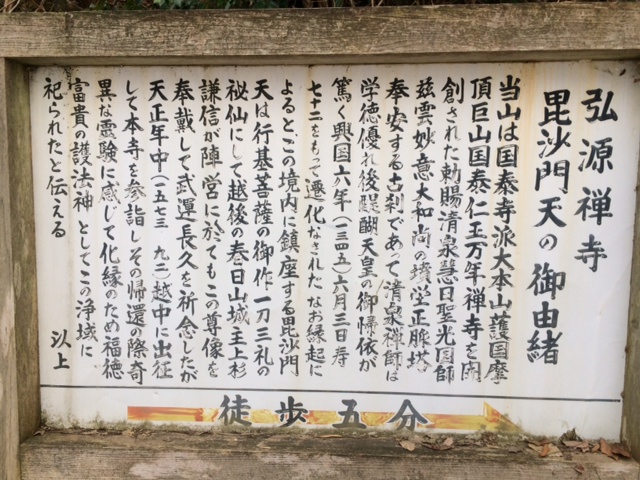 弘源禅寺
毘沙門天の御由緒
当山は国泰寺派大本山護国摩
頂巨山国泰仁王万年禅寺を開
創された勅賜清泉慧日聖光国師
慈雲妙意大和尚の墳堂正脈塔
奉安する古刹であって清泉禅師は
学徳優れ後醍醐天皇の御帰依が
篤く興国六年（一三四五）六月三日寿
七十二をもって遷化なされた なお縁起に
よると、この境内に鎮座する毘沙門
天は行基菩薩の御作一刀三礼の
秘仏にして越後の春日山城主上杉
謙信が陣営に於てもこの尊像を
奉戴して武運長久を祈念したが
天正年中（一五七三 九二）越中に出征
して本寺を参詣しその帰還の際奇
異な霊験に感じて化縁のため福徳
富貴の護法神としてこの浄域に
祀られたと伝える 以上
徒歩五分